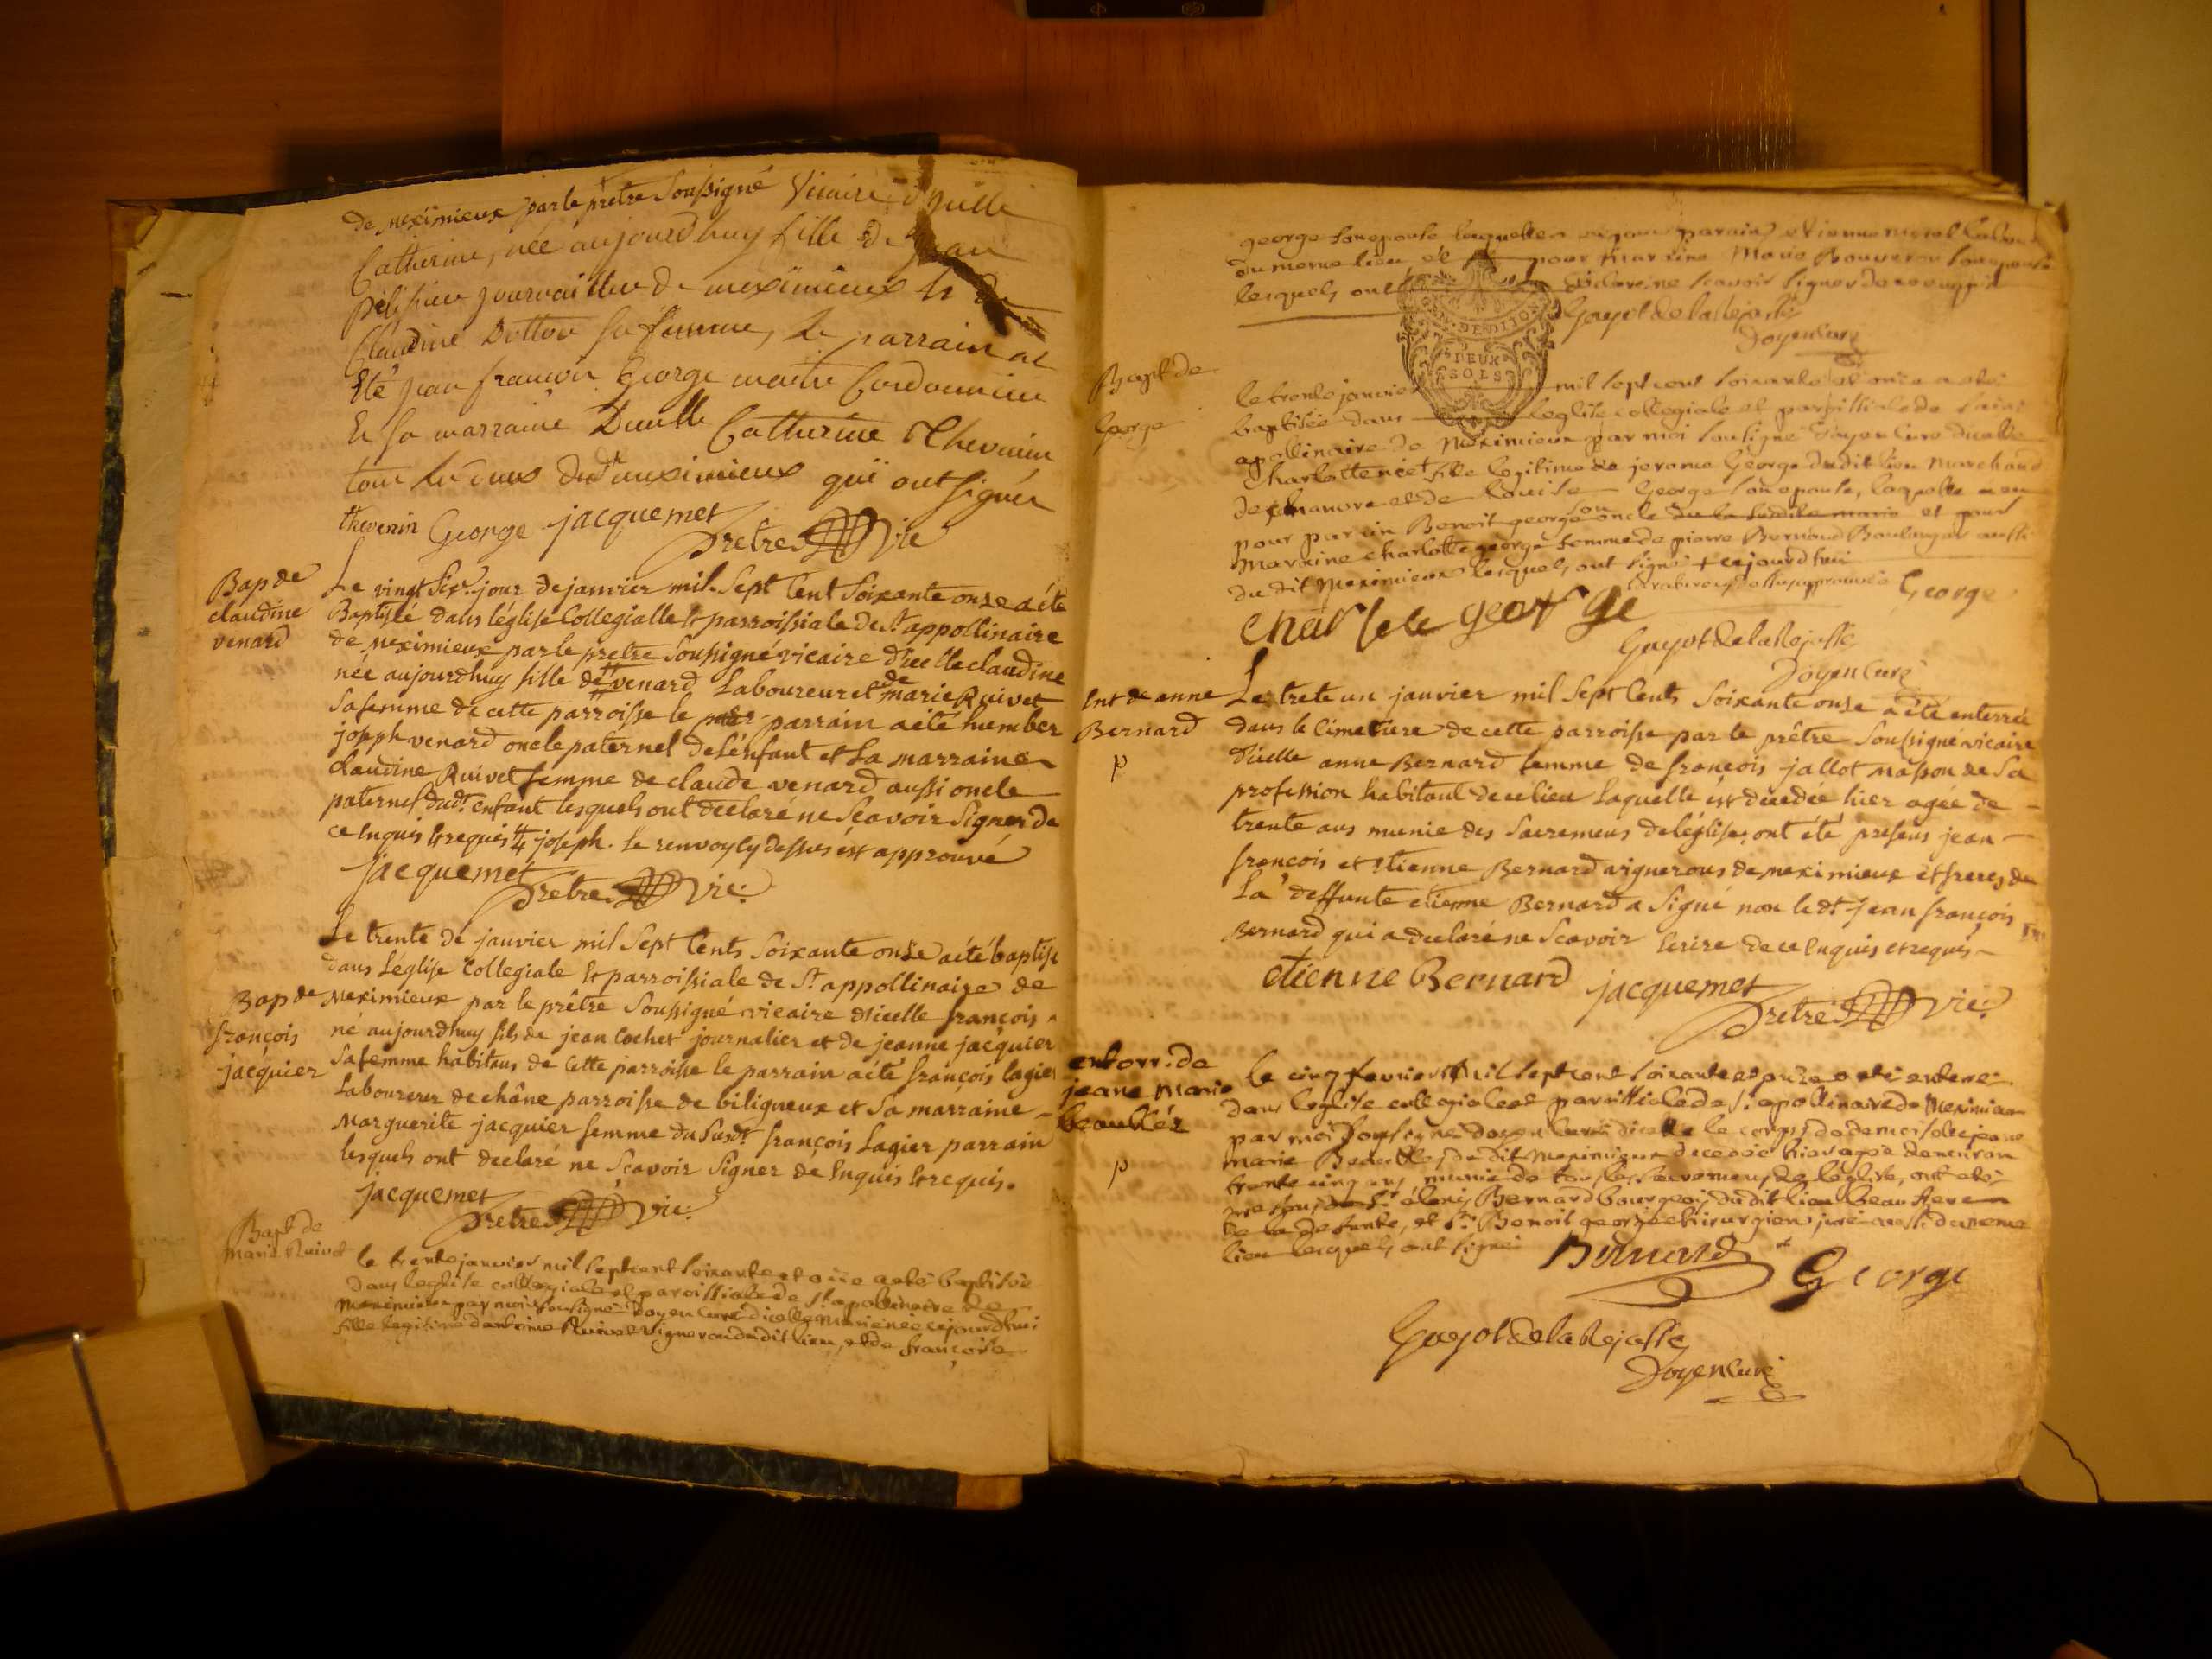 de meximieux par le prêtre Soussigné Vicaire d'icelle
Catherine, née aujourd'huy fille de jean
pelissier journaillier de meximieux et de
Claudine Dottou sa femme, le parrain at
Eté jean françois George maitre Cordonnier
Et sa marraine Dmlle Catherine Thevenin
tous les deux dudt meximieux qui ont signés
thevenin George jacquemet
Prêtre vic
Bap de
claudine
venard
Le vingt six. jour de janvier mil-Sept Cent Soixante onze a été
Baptisée dans léglise Collegialle et parroissiale de St appollinaire
de meximieux par le prêtre Soussigné vicaire d'icelle claudine
née aujourdhuy fille de # venard Laboureur et de marie Ruivet
sa femme de cette parroisse le parrain a été humber
joseph venard oncle paternel de l'énfant et La marraine
claudine Ruivet femme de claude venard aussi oncle
paternel dudt enfant lesquels ont declaré ne Scavoir Signer de
ce Enquis et requis # joseph. le renvoy cy dessus est approuvé
jacquemet
Prêtre vic.
Le trente de janvier mil Sept Cents Soixante onze a été baptisé
dans L'église Collegiale et parroissiale de St. appollinaire de
Bap de
françois
jacquier
meximieux par le prêtre Soussigné vicaire d'icelle françois
né aujourdhuy fils de jean Cochet journalier et de jeanne jacquier
Sa femme habitans de Cette parroisse le parrain a été françois lagier
Laboureur de châne parroisse de biligneux et Sa marraine
Marguerite jacquier femme du Susdt françois Lagier parrain
lesquels ont declaré ne Scavoir Signer de Enquis et requis.
jacquemet
Prêtre vic.
Bapt de
marie Ruivet
le trente janvier mil sept cent soixante et onze a été baptisée
dans l'eglise collegiale et paroissiale de St apollinaire de
Meximieux par moi soussigné doyen curé d'icelle Marie née cejourd'hui
fille legitime d'antoine Ruivet vigneron dudit lieu, et de françoise
george son epouse laquelle a eu pour parain etienne
du meme lieu et pour Marrine Marie Bouveron son epouse
lesquels ont déclaré ne scavoir signer de ce enquis
GEN. DE DIJON
DEUX
SOLS
Guyot de la Rejasse
Doyen Curé
Bapt de
George
le trente janvier mil sept cent soixante et onze a été
baptisée dans l'eglise collegiale et paroissiale de saint
apollinaire de Meximieux par moi soussigné doyen Curé d'icelle
Charlotte née + fille legitime de jerome George dudit lieu Marchand
de chanvre et de louise George son epouse, laquelle a eu
pour parain Benoit george son oncle de la susdite marie et pour
Marrine Charlotte george femme de pierre Bernard Boulanger aussi
du dit Meximieux lesquels ont signé + cejourd'hui
George
charlote george
Guyot de la Rejasse
Doyen Curé
Ent de anne
Bernard
p
Le trete un janvier mil Sept Cents Soixante onze a été enterrée
dans le Cimetiere de cette parroisse par le prêtre Soussigné vicaire
d'icelle anne Bernard femme de françois jallot masson de Sa
profession habitant de ce lieu Laquelle est décédée hier agée de
trente ans munie des Sacremens de léglise, ont été présens jean
françois et etienne Bernard vignerons de meximieux et freres de
La deffunte etienne Bernard a Signé non le dt jean françois
Bernard qui a declaré ne Scavoir Ecrire de ce Enquis et requis
etienne Bernard
jacquemet
Prêtre vic.
enterr. de
jeane Marie
beaublez
p
le cinq fevrier Mil sept cent soixante et onze a eté enteré
dans l'eglise collegiale et paroissiale de St. apollinaire de Meximieux
par moi soussigné doyen curé d'icelle le corps de demoiselle jeane
marie dudit Meximieux decedée hier agée denviron
trente cinq ans munie de tous les sacremens de l'eglise, ont etés
presens Sr. Bernard bourgeois dudit lieu beau frere
de la defunte, et Sr. Benoit george chirurgien juré aussi du meme
lieu lesquels ont signé
Bernard
George
Guyot de la Rejasse
Doyen Curé